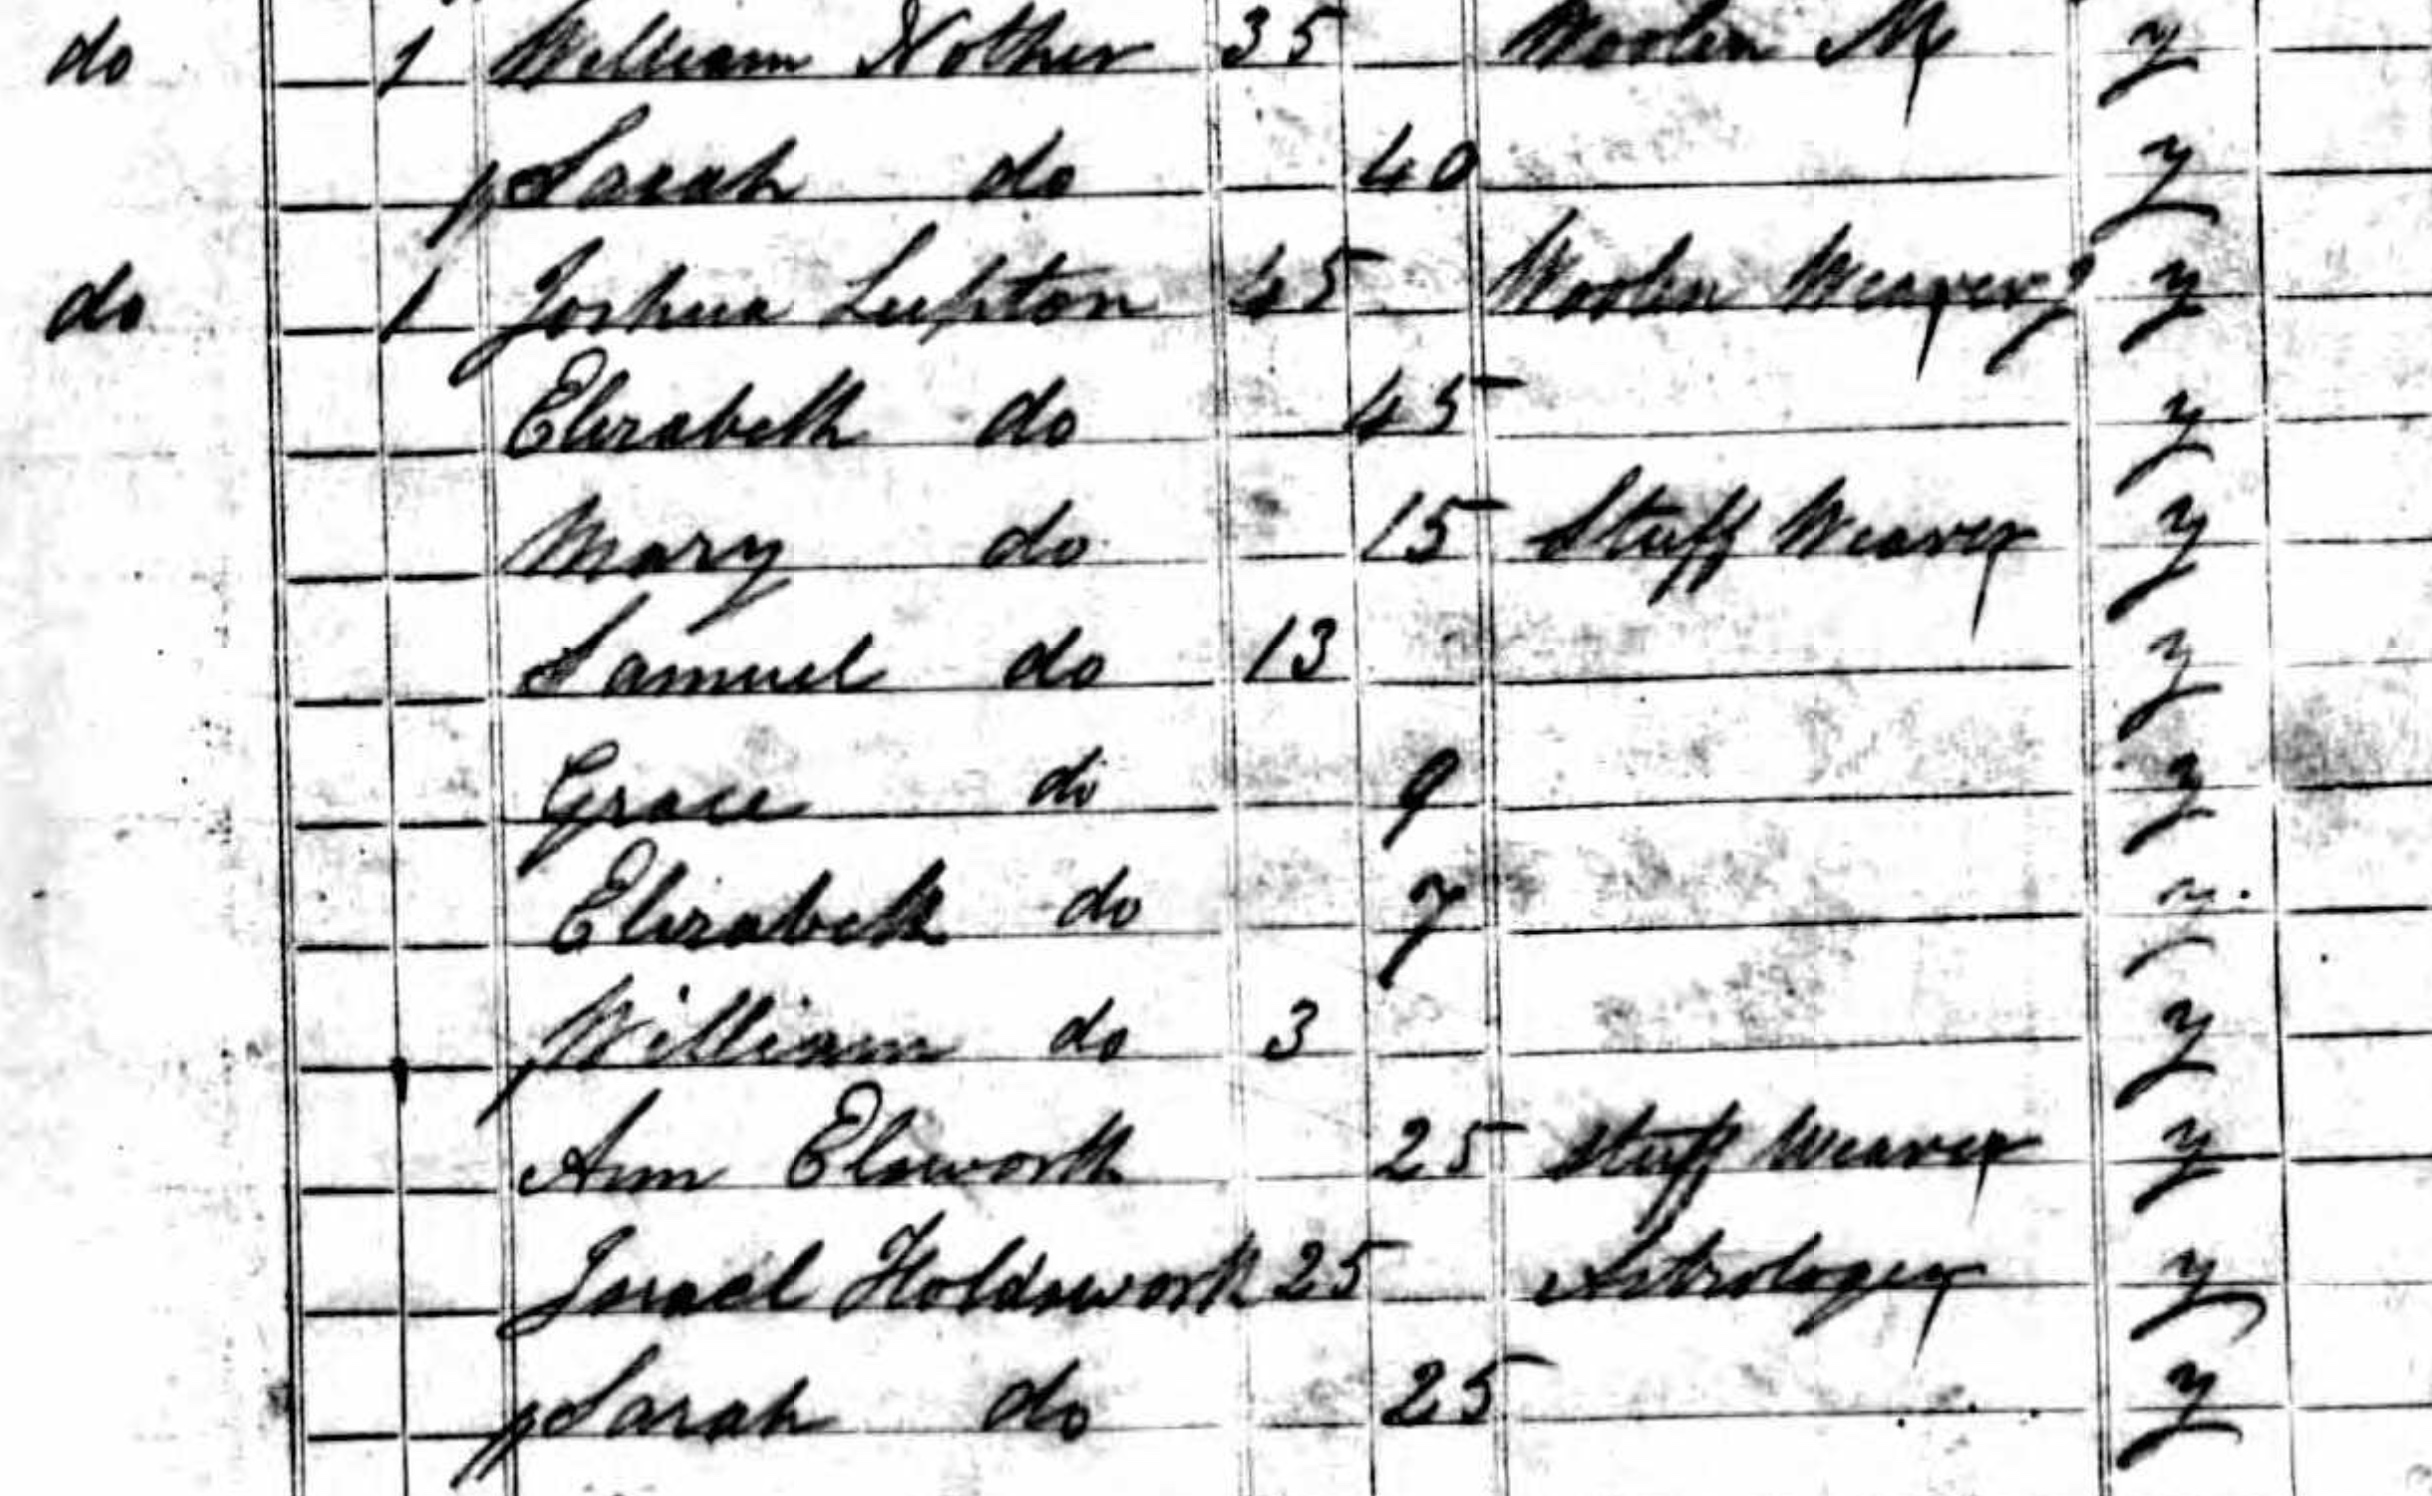 do 1 William Nother 35 Woolen M y
Sarah do 40 y
do 1 Joshua Lupton 45 Woolen Weaver J y
Elizabeth do 45 y
Mary do 15 Stuff Weaver y
Samuel do 13 y
Grace do 9 y
Elizabeth do 7 y
William do 3 y
Ann Elsworth 25 Stuff Weaver y
Israel Holdsworth 25 Astrologer y
Sarah do 25 y